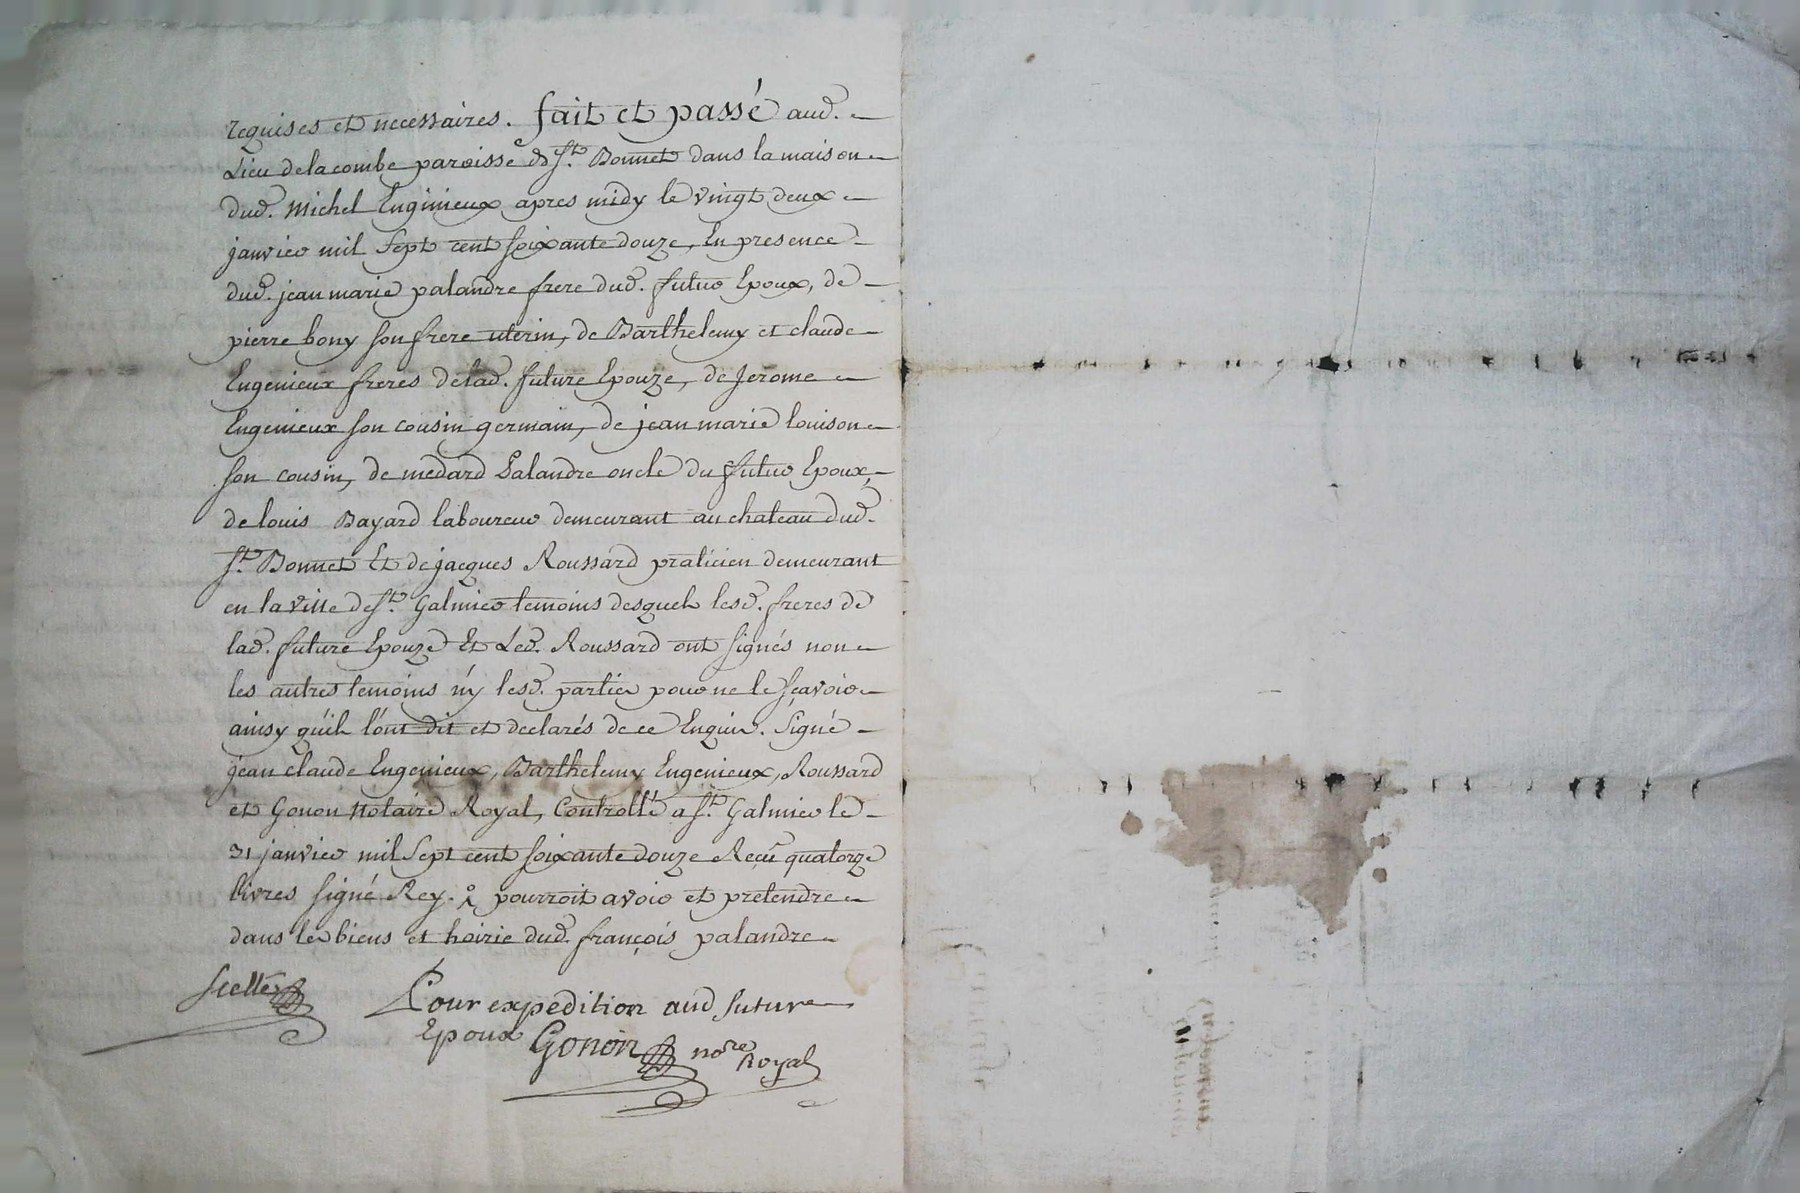 requises et necessaires. fait et passé aud.
Lieu delacombe paroisse de St. Bonnet dans la maison
dud. Michel Enginieux apres midy le vingt deux
janvier mil Sept cent soixante douze, En presence
dud. jean marie palandre frere dud. futur Epoux, de
pierre bony son frere uterin, de Barthelemy et claude
Engenieux freres delad. future Epouze, de Jerome
Engenieux son cousin germain, de jean marie louison
son cousin, de medard Palandre oncle du futur Epoux,
de louis Bayard laboureur demeurant au chateau dud.
St. Bonnet Et de jacques Roussard praticien demeurant
en la ville de St. Galmier temoins desquels lesd. freres de
lad. future Epouze Et Led. Roussard ont signés non
les autres temoins n'y lesd. parties pour ne le sçavoir
ainsy qu'ils l'ont dit et declarés de ce Enquis. Signé
jean claude Engenieux, Barthelemy Engenieux, Roussard
et Gonon Notaire Royal, Controllé a St. Galmier le
31 janvier mil Sept cent soixante douze Reçu quatorze
livres signé Rey. pourroit avoir et pretendre
dans les biens et hoirie dud. françois palandre
Scellé
Pour expedition aud future
Epoux Gonon nore Royal